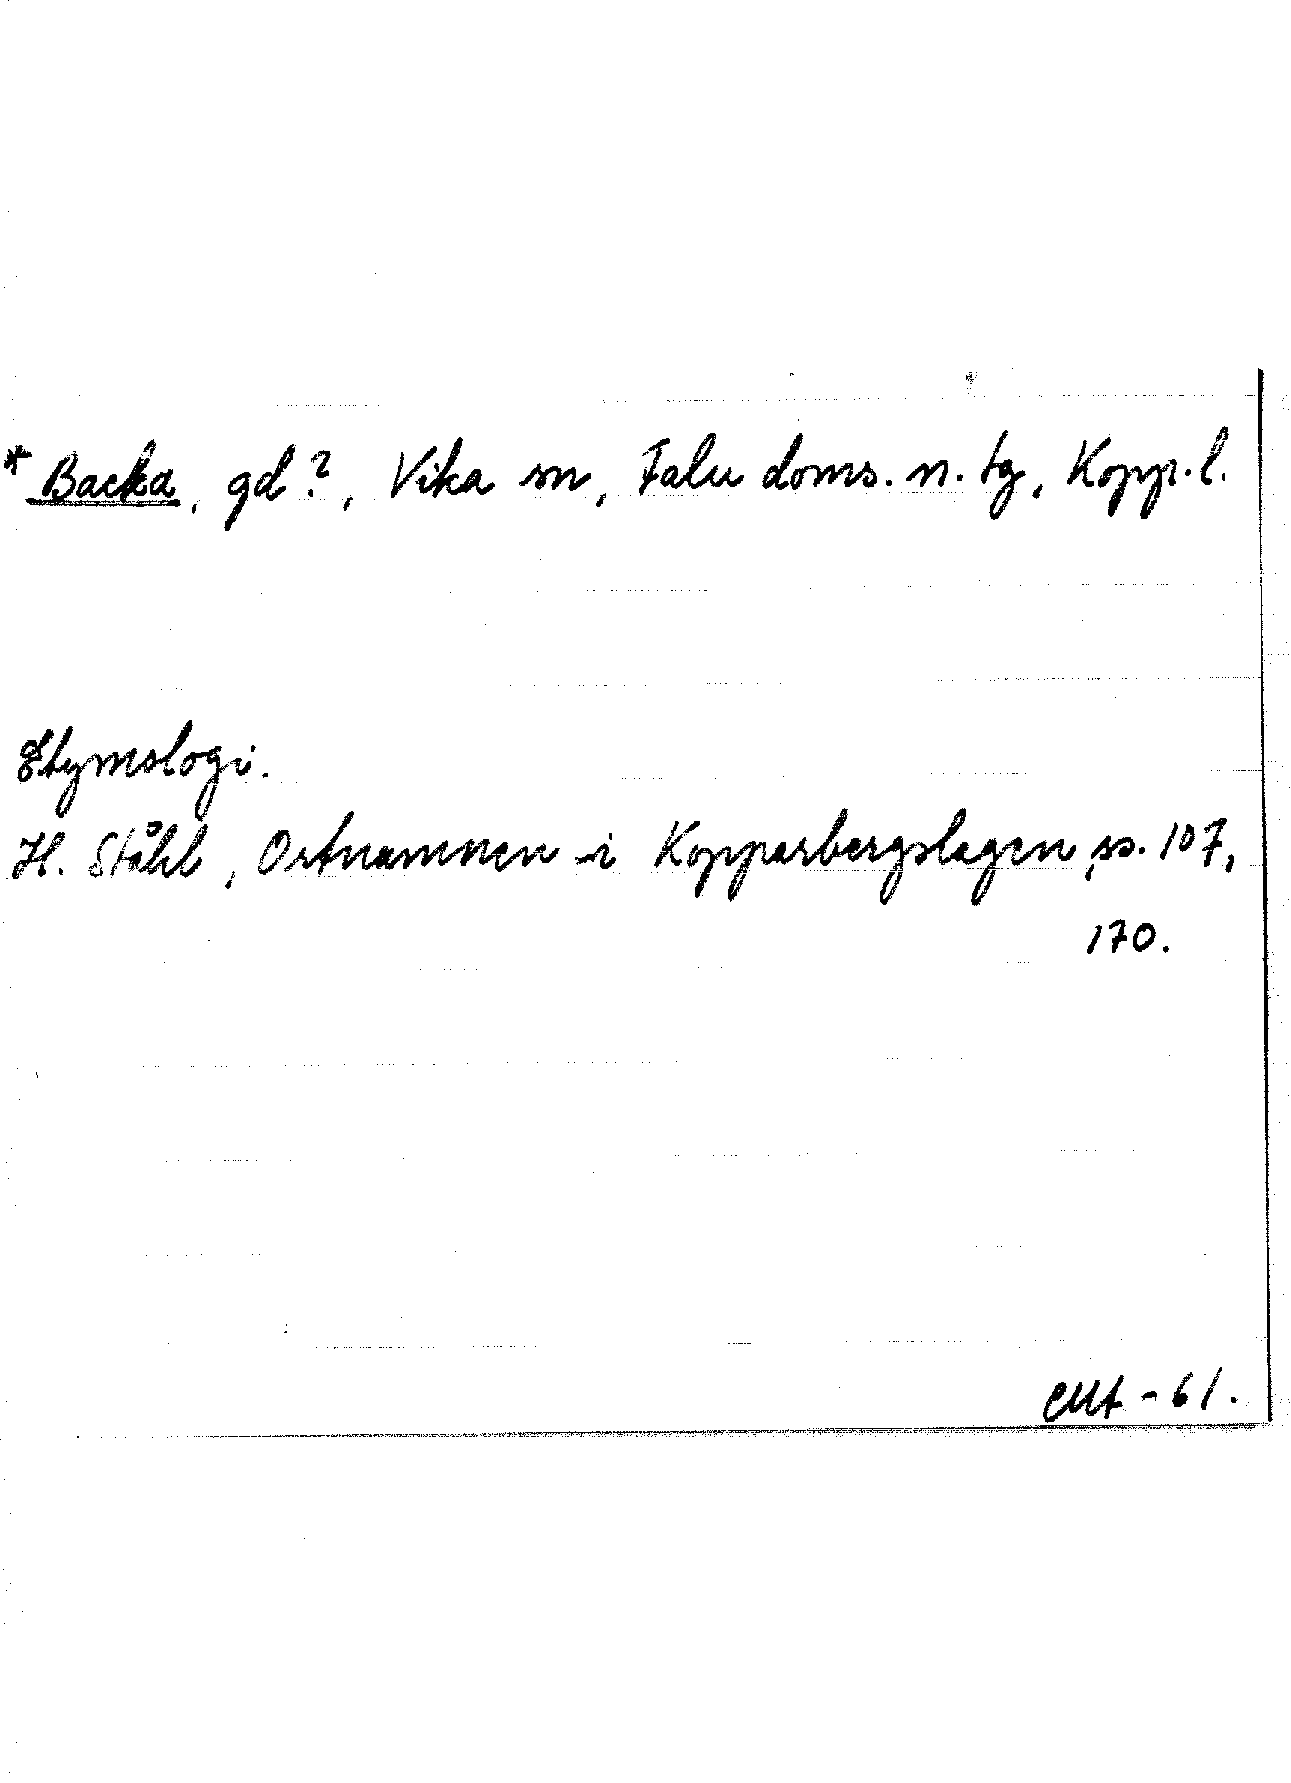 *Backa, gd?, Vika sn, Falu doms. n. tg, Kopp. l.
Etymologi.
H. Ståhl, Ortnamnen i Kopparbergslagen, ss. 107,
170.
-61.